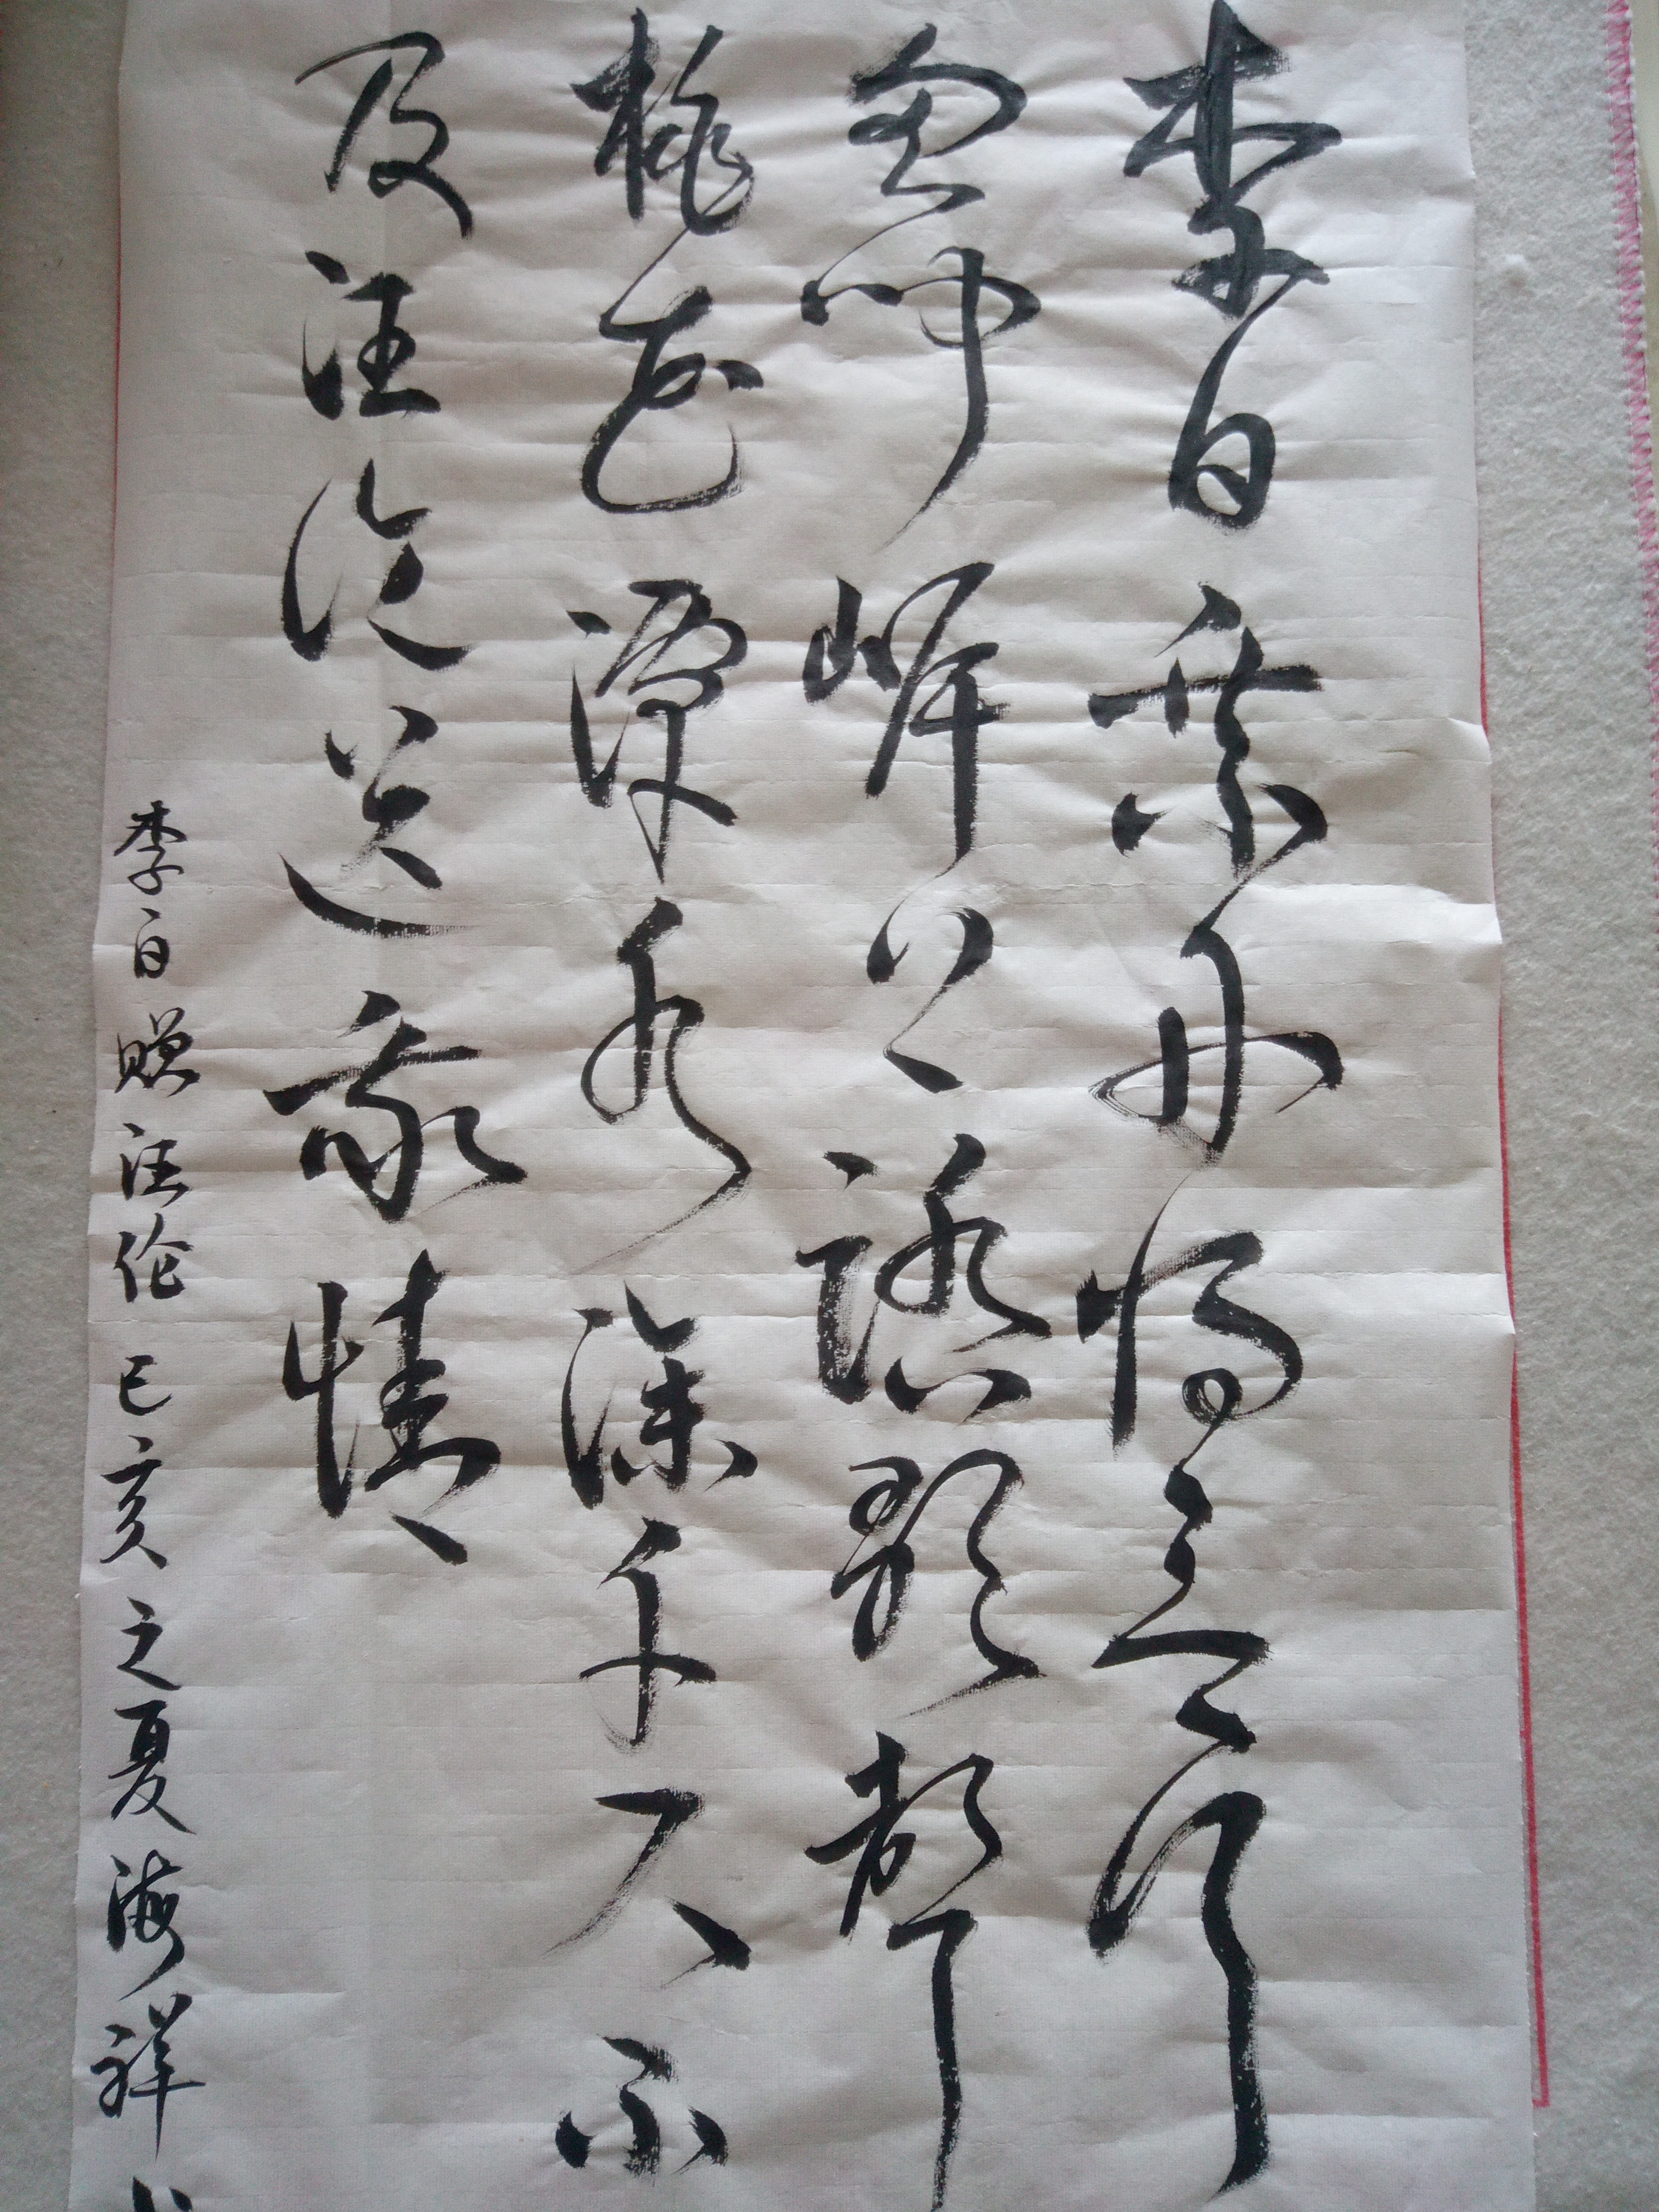 李白乘舟将欲行
忽闻岸上踏歌声
桃花潭水深千尺不
及汪伦送我情
李白赠汪伦 己亥之夏 海祥